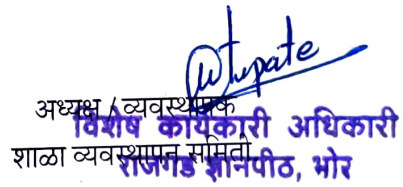 अध्यक्ष / व्यवस्थापक
विशेष कार्यकारी अधिकारी
शाळा व्यवस्थापन समिती
राजगड ज्ञानपीठ, भोर